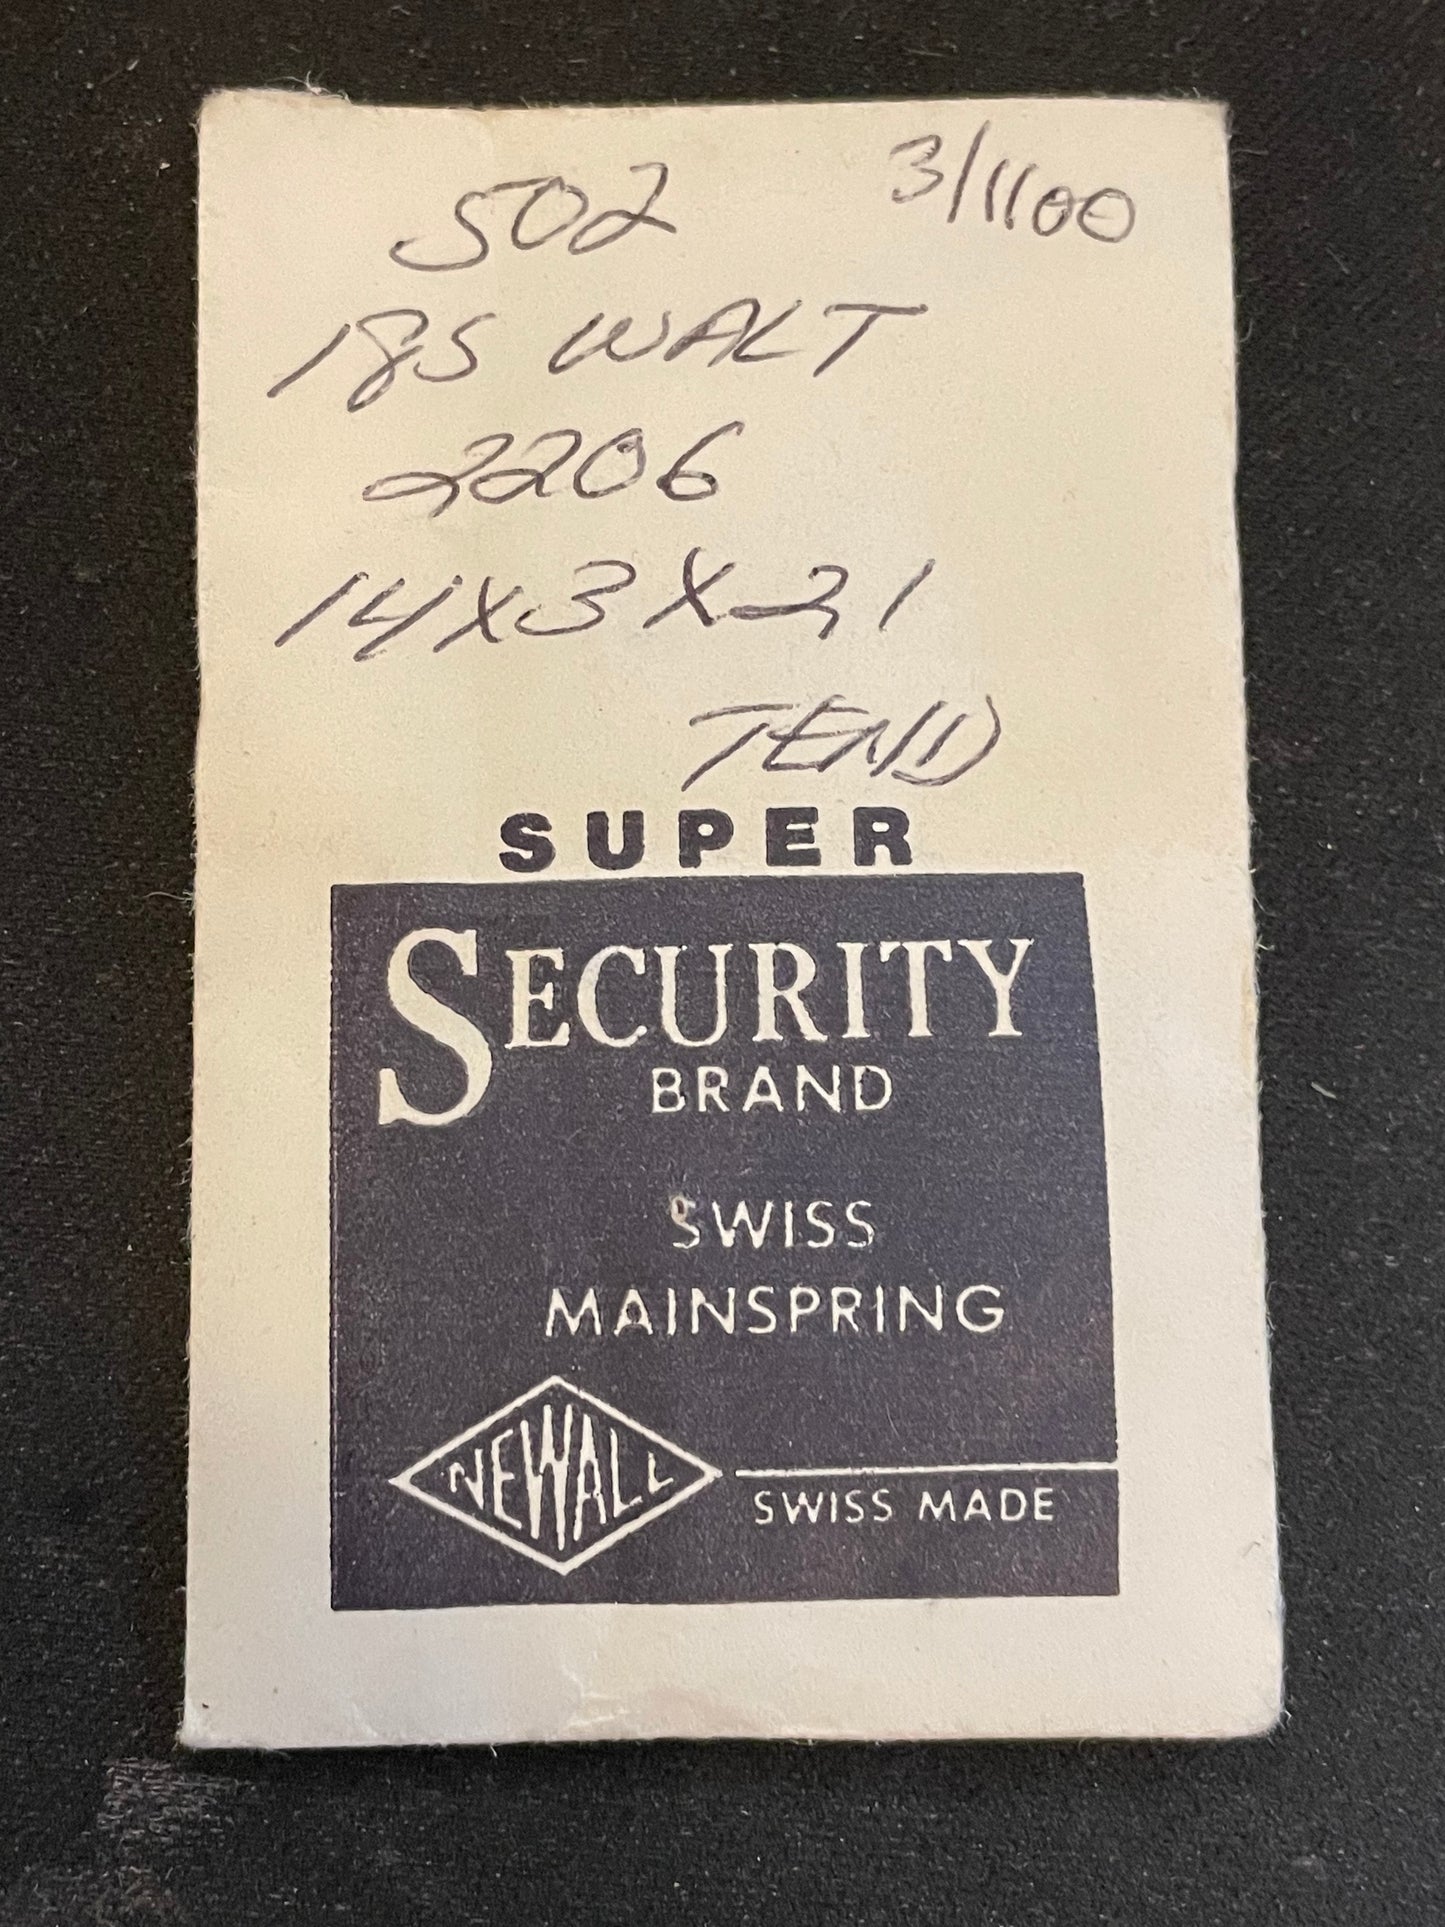 502 3/1100
18S WALT
2206
14X3X21
TEND
SUPER
SECURITY
BRAND
SWISS
MAINSPRING
NEWALL
SWISS MADE